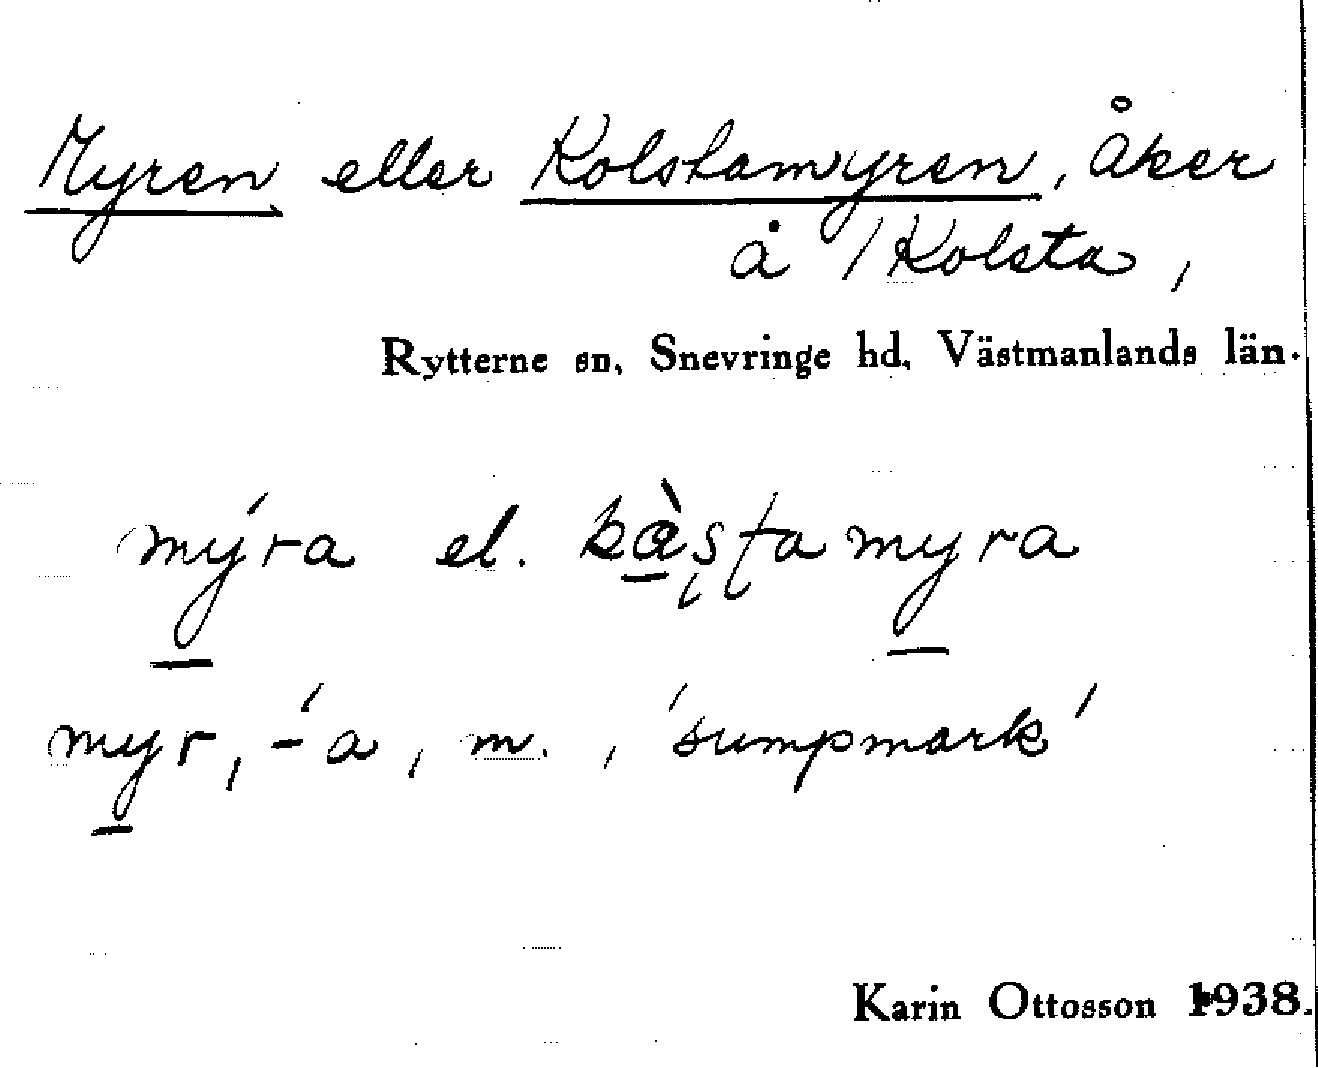 Myren eller Kolstamyren, åker
å /Kolsta,
Rytterne sn, Snevringe hd, Västmanlands län.
mýra el. kàstamyra
myr, -́a, m., 'sumpmark'
Karin Ottosson 1938.